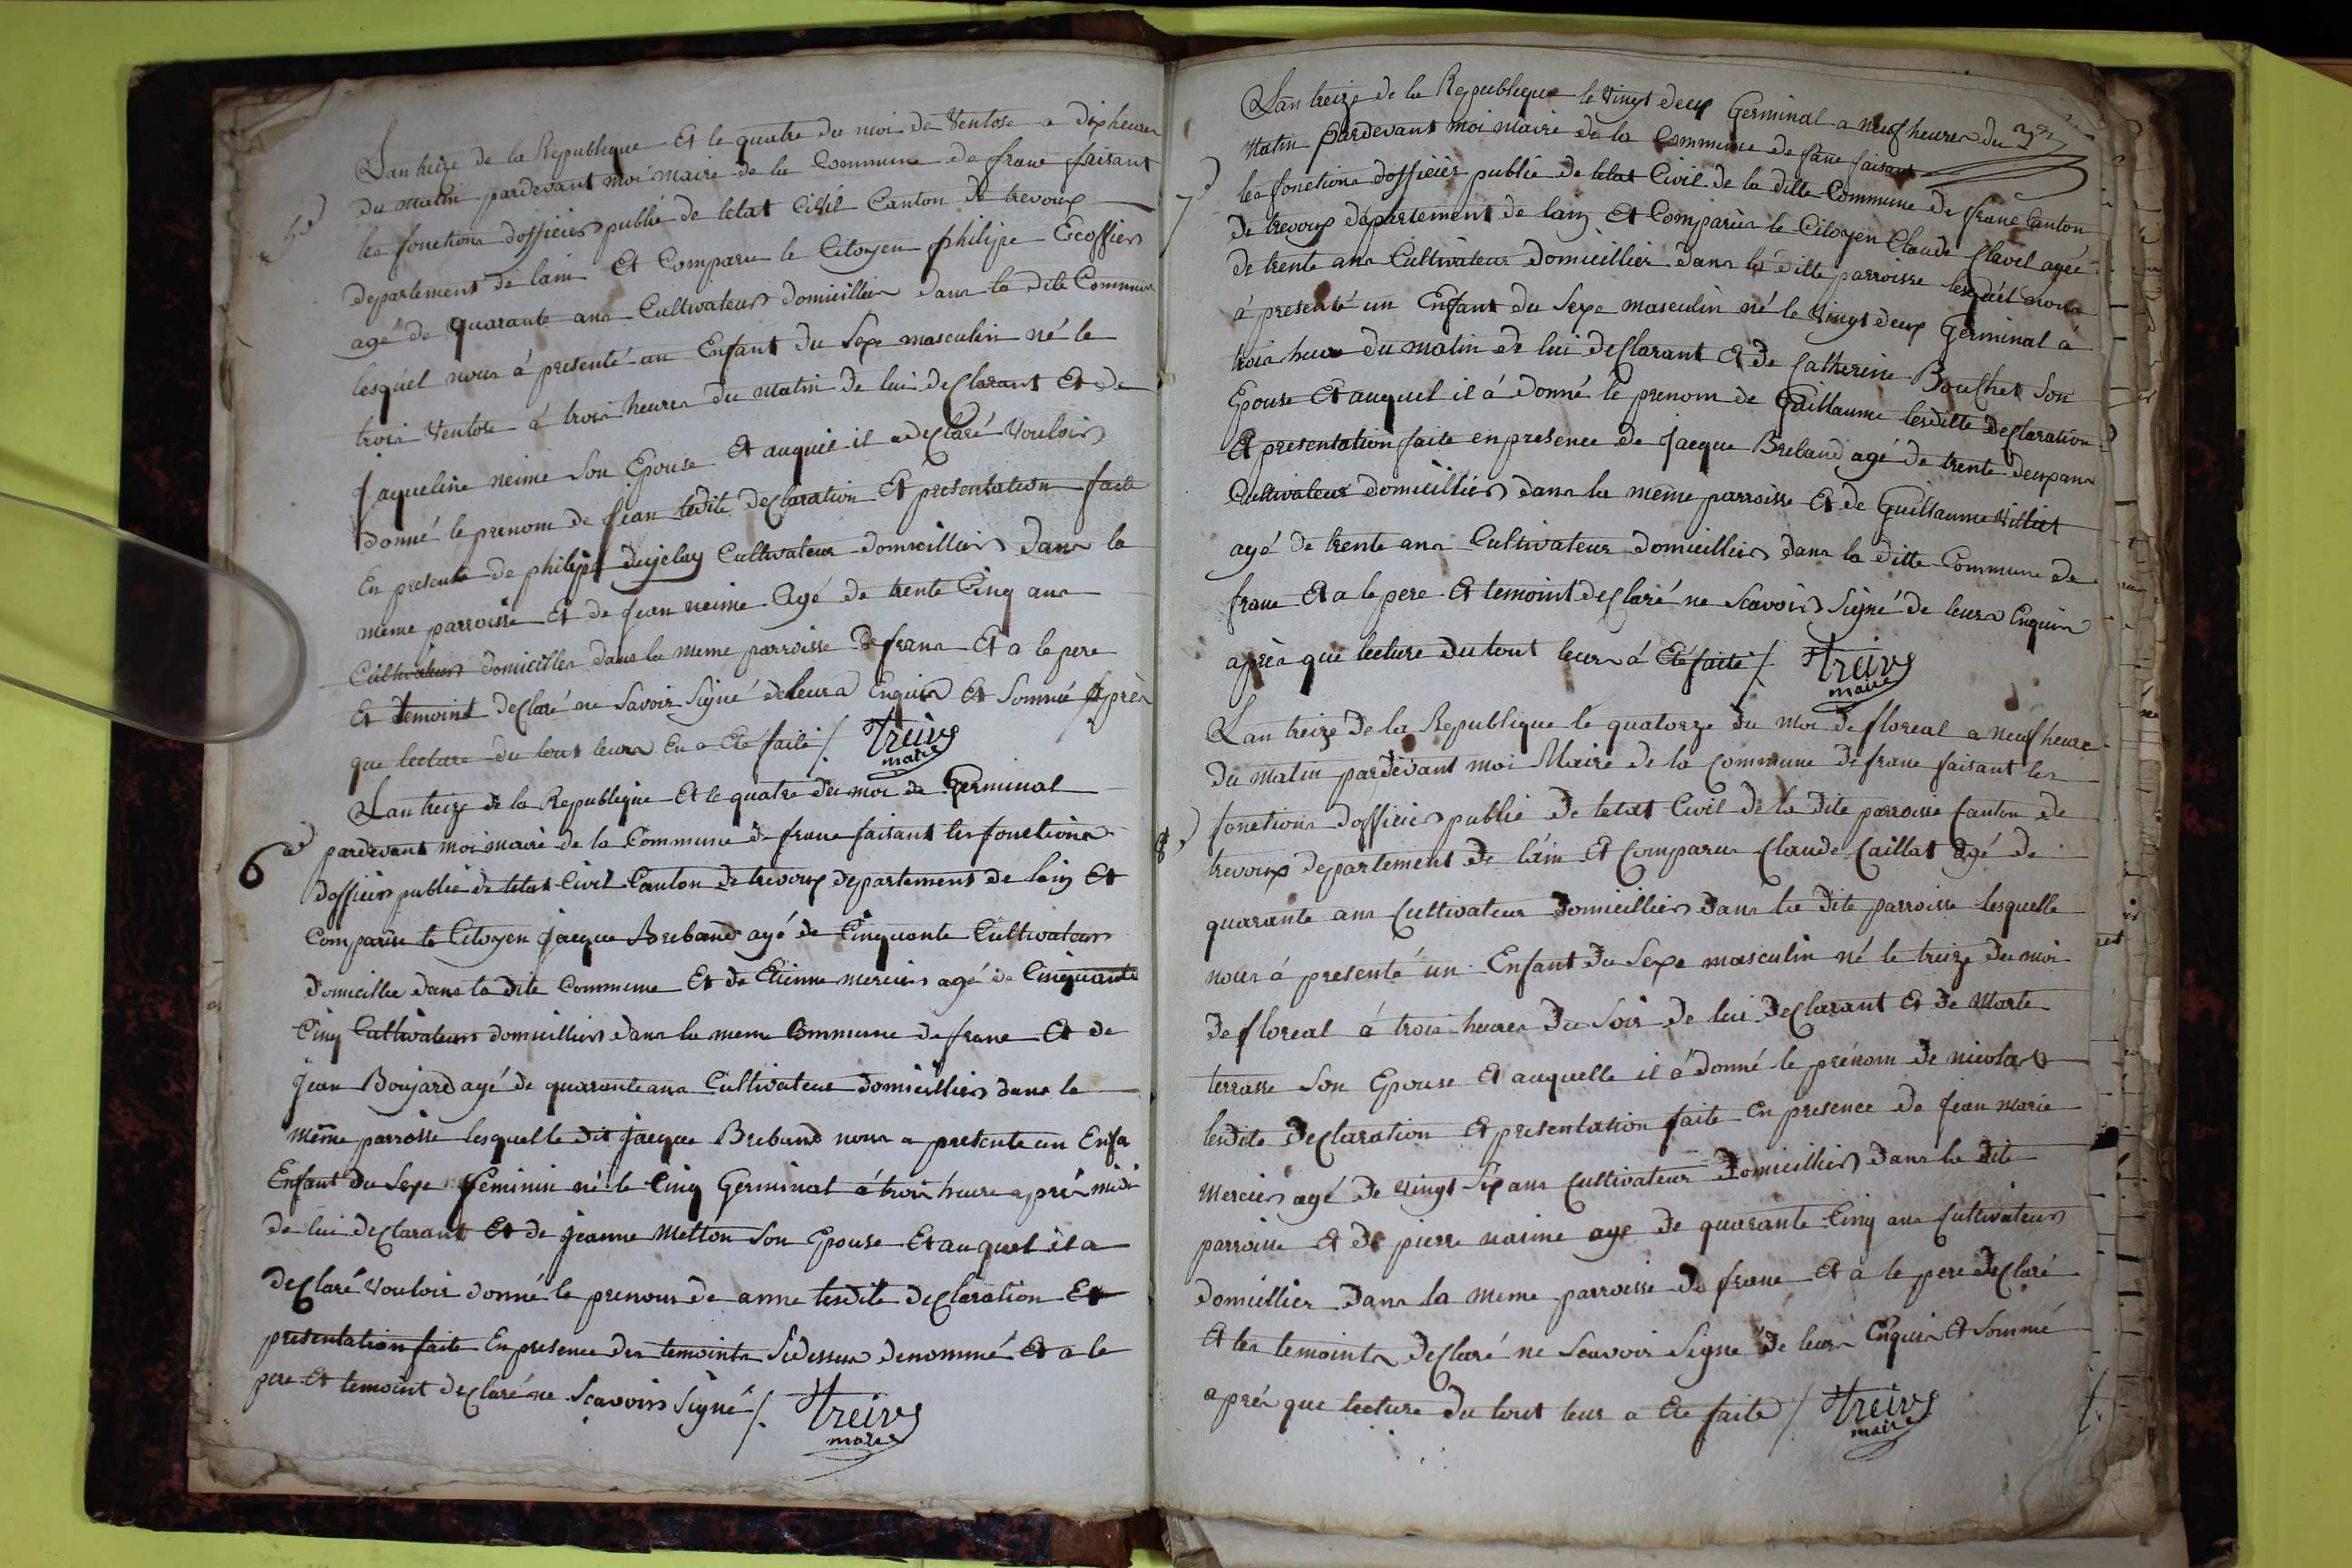 Lan treize de la Republique Et le quatre du moi de Ventose a dix heures
du matin pardevant moi maire de la Commune de franc faisant
5e
les fonctions dofficier public de letat Civil Canton de trevoux
departement de lain Et Comparu le Citoyen philipe Escoffier
agé de quarante ans Cultivateur domicillier dans la dite Commune
lesquel nous á presenté un Enfant du Sexe masculin né le
trois Ventose á trois heures du matin de lui declarant Et de
Jaqueline neime Son Epouse Et auquel il a declaré Vouloir
donné le prenom de Jean lesdite declaration Et presentation faite
En presence de philipe dujclay Cultivateur domicillier dans la
meme parroisse Et de Jean neime Agé de trente Cinq ans
Cultivateur domicillier dans la meme parroisse de frans Et a le pere
Et temoint declaré ne Savoir Signé de leurs Enquis Et Sommé Après
que lecture du tout leurs En a Eté faite /. Treivs
maire
Lan treize de la Republique Et le quatre du moi de Germinal
6e
pardevant moi maire de la Commune de franc faisant les fonctions
dofficier public de letat Civil Canton de trevoux departement de lain Et
Comparus le Citoyen Jacque Breband agé de Cinquante Cultivateur
domicillie dans la dite Commune Et de Etienne mercier agé de Cinquante
Cinq Cultivateur domicillier dans la meme Commune de franc Et de
Jean Boujard agé de quarante ans Cultivateur domicillier dans la
même parroisse lesquelle dit Jacque Breband nous a presente un Enfa
Enfant du Sexe feminin né le Cinq Germinal á trois heure après midi
de lui declarant Et de Jeanne Metton Son Epouse Et auquel il a
declaré Vouloir donné le prenom de anne lesdite declaration Et
presentation faite En presence des temoints Sidessus denommé Et a le
pere Et temoint declaré ne Scavoir Signé /. Treivs
maire
Lan treize de la Republique le Vingt deux Germinal a neuf heures du
3e
Matin Pardevant moi maire de la Commune de franc faisant
7e
les fonctions dofficier public de letat Civil de la ditte Commune de franc Canton
de trevoux département de lain Et Comparus le Citoyen Claude Clavel agée
de trente ans Cultivateur domicillier dans la ditte parroisse lesquel nous
á presenté un Enfant du Sexe masculin né le Vingt deux Germinal á
trois heure du matin de lui declarant Et de Catherine Bouchet Son
Epouse Et auquel il á donné le prenom de Guillaume lesditte declaration
Et presentation faite en presence de Jacque Breband agé de trente deux ans
Cultivateur domicillier dans la même parroisse Et de Guillaume Villiet
agé de trente ans Cultivateur domicillier dans la ditte Commune de
franc Et a le pere Et temoint declaré ne Scavoir Signé de leurs Enquis
après que lecture du tout leurs á Eté faite /. Treivs
maire
Lan treize de la Republique le quatorze du moi de floreal a neuf heure
du matin pardevant moi Maire de la Commune de franc faisant les
8e
fonctions dofficier public de letat Civil de la dite parroisse Canton de
trevoux departement de láin Et Comparus Claude Caillat Agé de
quarante ans Cultivateur domicillier dans la dite parroisse lesquelle
nous á presenté un Enfant du Sexe masculin né le treize du moi
de floreal á trois heures du Soir de lui declarant Et de Marte
terrasse Son Epouse Et auquelle il á donné le prénom de nicolas
lesdite declaration Et presentation faite En presence de Jean Marie
Mercier agé de Vingt Six ans Cultivateur domicillier dans la dite
parroisse Et de pierre naime agé de quarante Cinq ans Cultivateur
domicillier dans la meme parroisse de franc Et a le pere declaré
Et les temoints declaré ne Scavoir Signé de leurs Enquis Et Sommé
après que lecture du tout leur a Eté faite / Treivs
maire